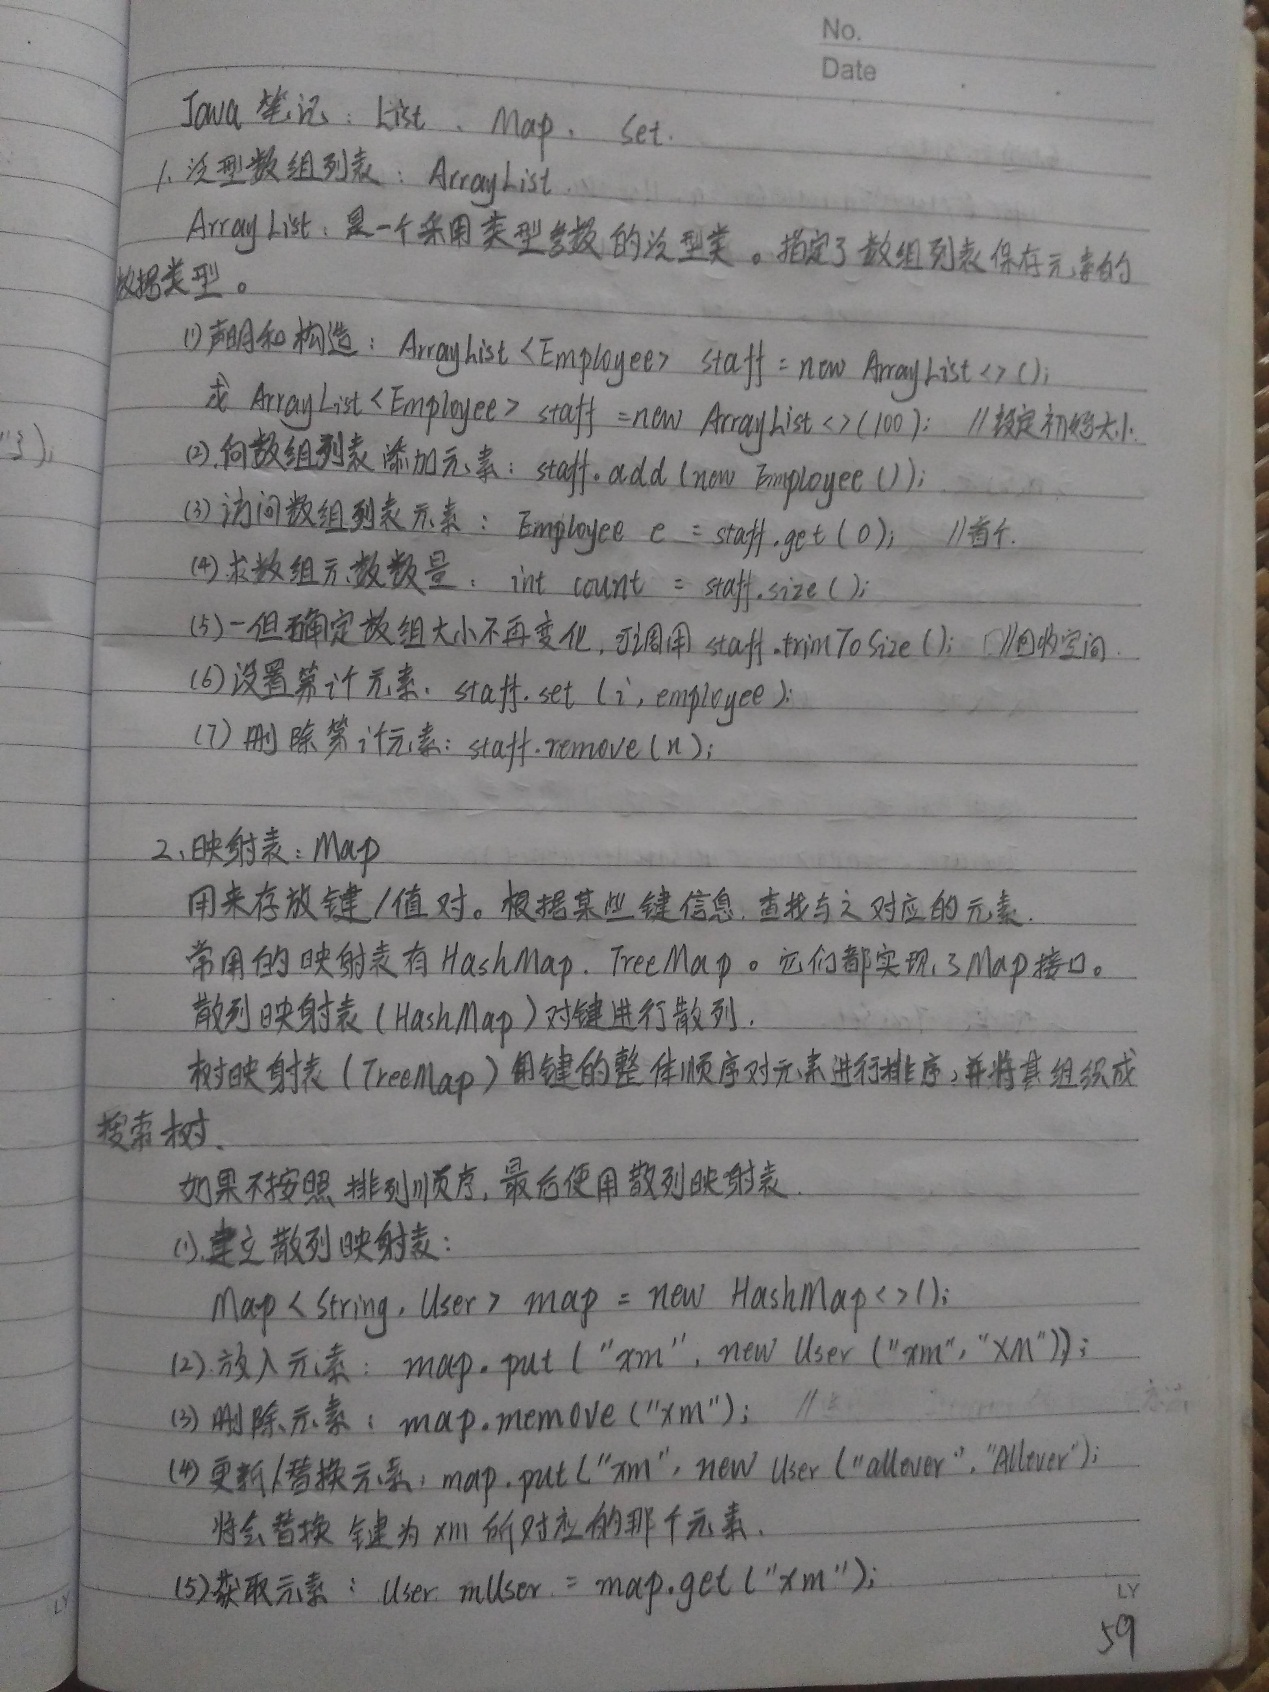 No.
Date
Java 笔记：List、Map、Set.
1、泛型数组列表：ArrayList.
ArrayList：是一个采用类型参数的泛型类。指定了数组列表保存元素的
数据类型。
(1) 声明和构造：ArrayList<Employee> staff = new ArrayList<>();
或 ArrayList<Employee> staff = new ArrayList<>(100); //设定初始大小.
(2).向数组列表添加元素：staff.add(new Employee());
(3) 访问数组列表元素：Employee e = staff.get(0); //首个.
(4) 求数组元数数量：int count = staff.size();
(5) 一但确定数组大小不再变化,可调用 staff.trimToSize(); //回收空间.
(6) 设置第i个元素：staff.set(i, employee);
(7) 删除第i个元素：staff.remove(n);
2、映射表：Map
用来存放键/值对。根据某些键信息,查找与之对应的元素.
常用的映射表有HashMap、TreeMap。它们都实现了Map接口。
散列映射表(HashMap)对键进行散列.
树映射表(TreeMap)用键的整体顺序对元素进行排序,并将其组织成
搜索树.
如果不按照排列顺序,最后使用散列映射表.
(1).建立散列映射表：
Map<String, User> map = new HashMap<>();
(2).放入元素：map.put("xm", new User("xm","XM"));
(3) 删除元素：map.memove("xm"); //
(4) 更新/替换元素：map.put("xm", new User("allever","Allever");
将会替换键为xm所对应的那个元素.
(5) 获取元素：User mUser = map.get("xm");
LY
59
"};
LY